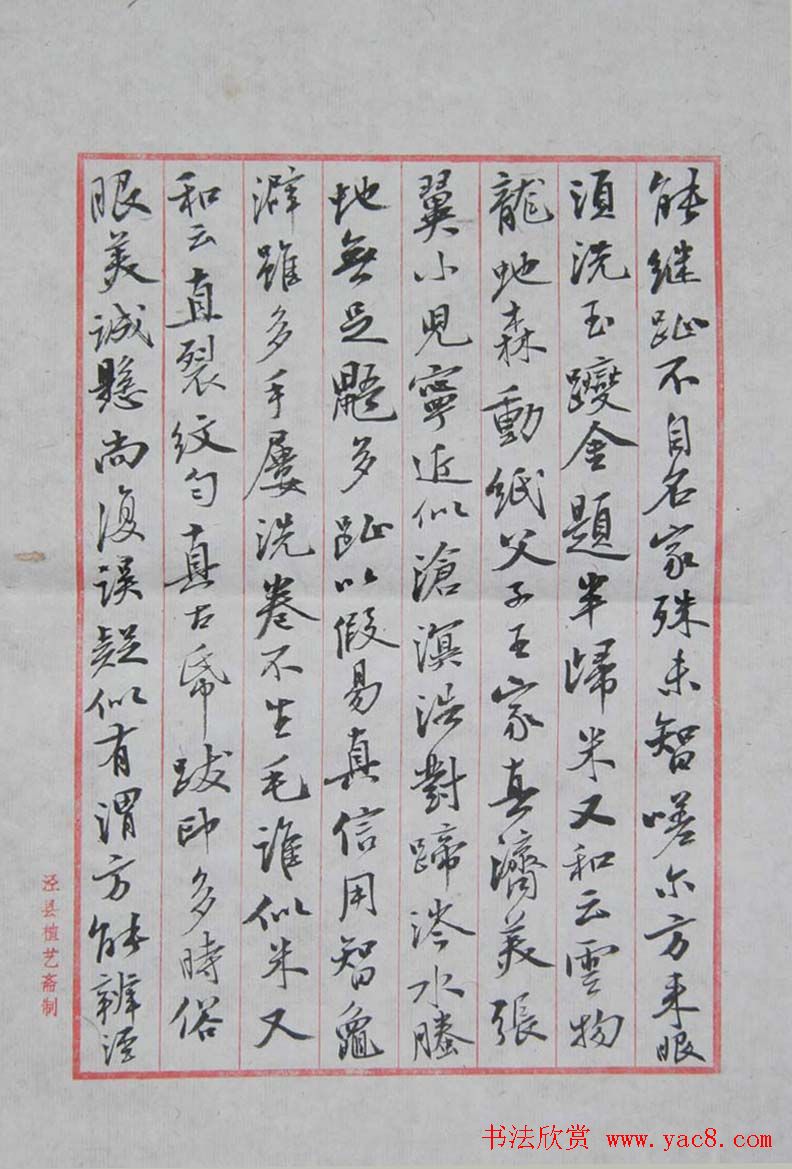 能继趾不自名家殊未智嗟尔方来眼
須洗玉躞金題半歸米又和云雲物
龍虵森動紙父子王家真濟美張
翼小兒寧近似滄溟浩對蹄涔水螣
虵無足鼯多趾以假易真信用智龜
澼雖多手屢洗卷不生毛誰似米又
和云直裂紋勻真古帋跋印多時俗
眼美誠懸尚復误疑似有渭方能辨涇
泾县植艺斋制
书法欣赏 www.yac8.com